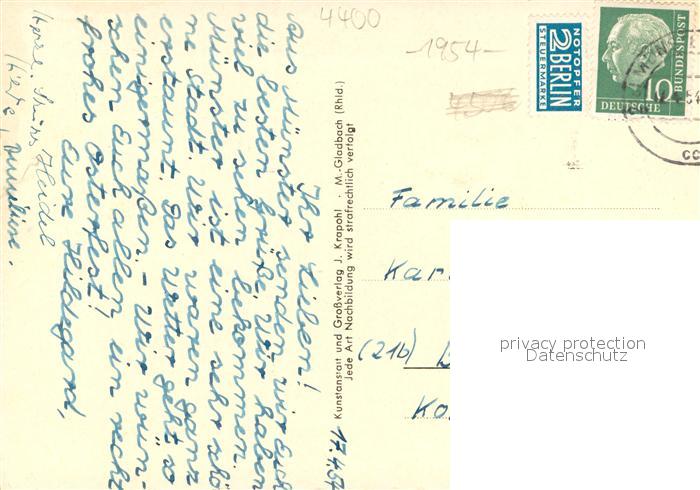 4400
-1954-
NOTOPFER
2 BERLIN
STEUERMARKE
10
DEUTSCHE
BUNDESPOST
17.4.54
Ihr Lieben!
Aus Münster senden wir Euch
die besten Grüße. Wir haben
viel zu sehen bekommen.
Münster ist eine sehr schö
ne Stadt. Wir waren ganz
erstaunt. Das Wetter geht so
einigermaßen – Wir wün-
schen Euch allen ein recht
frohes Osterfest!
Eure Hildegard,
Heidel
Kunstanstalt und Großverlag J. Krapohl M.-Gladbach (Rhld.)
Jede Art Nachbildung wird strafrechtlich verfolgt
Familie
Kar
(21b)
Ko
privacy protection
Datenschutz